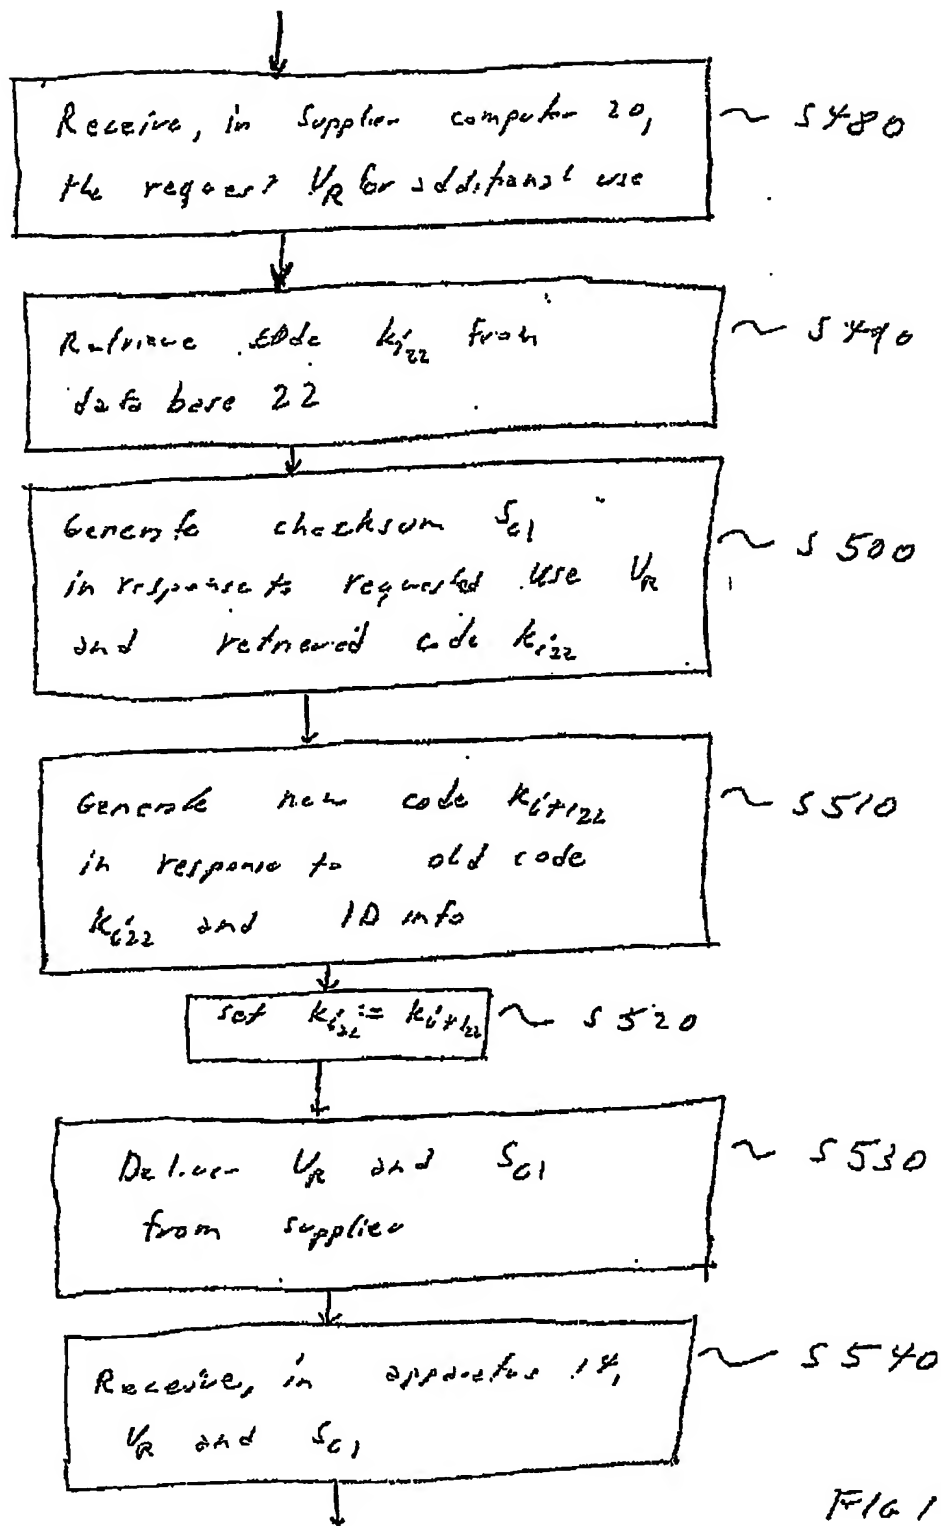 Receive, in supplier computer 20, ~ S480
the request VR for additional use
Retrieve code ki22 from ~ S490
data base 22
Generate checksum Sc1
in response to requested use VR ~ S500
and retrieved code ki22
Generate new code ki+122 ~ S510
in response to old code
ki22 and ID info
set ki22 := ki+122 ~ S520
Deliver VR and Sc1 ~ S530
from supplier
Receive, in apparatus 14, ~ S540
VR and Sc1
FIG 1